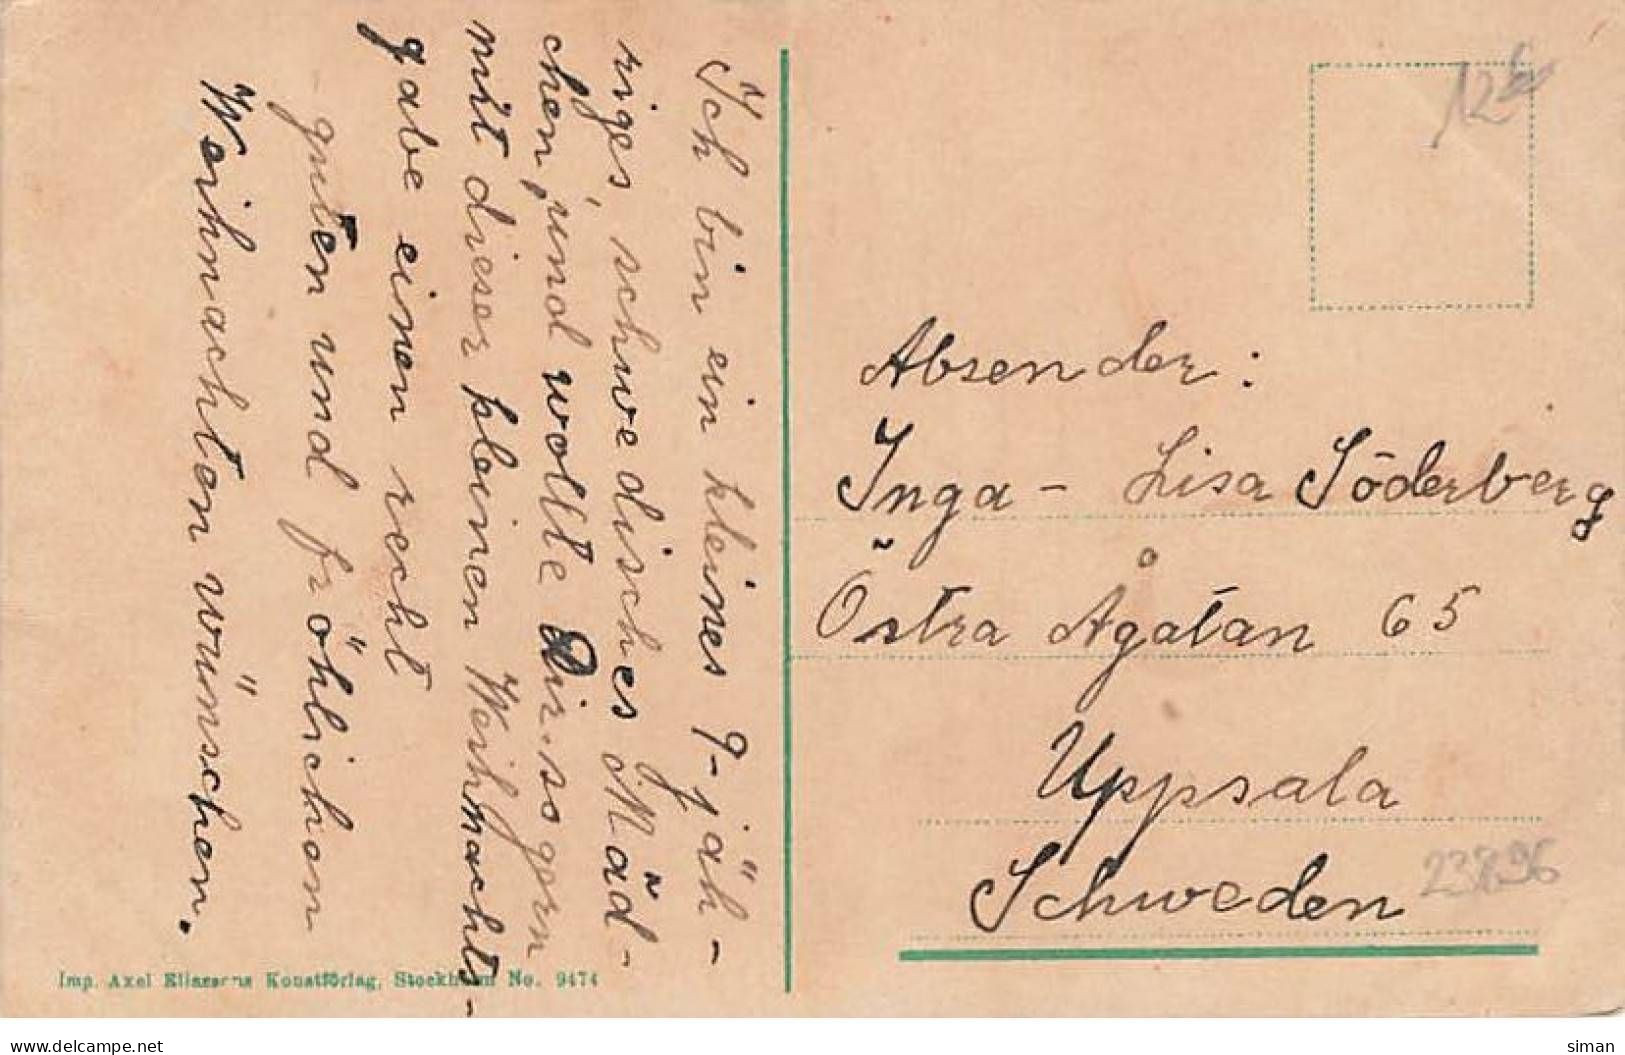 Ich bin ein kleines 9-jäh-
riges, schwedisches Mäd-
chen, und wollte Dir so gern
mit dieser kleinen Weihnachts-
gabe einen recht
guten und fröhlichen
Weihnachten wünschen.
Absender:
Inga-Lisa Söderberg
Östra Ågatan 65
Uppsala
Schweden
Imp. Axel Eliassons Konstförlag, Stockholm No. 9474
delcampe.net
siman